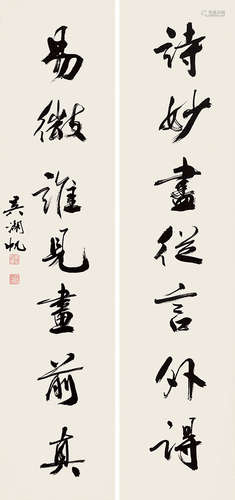 詩妙盡從言外得
易微誰見畫前真
吳湖帆